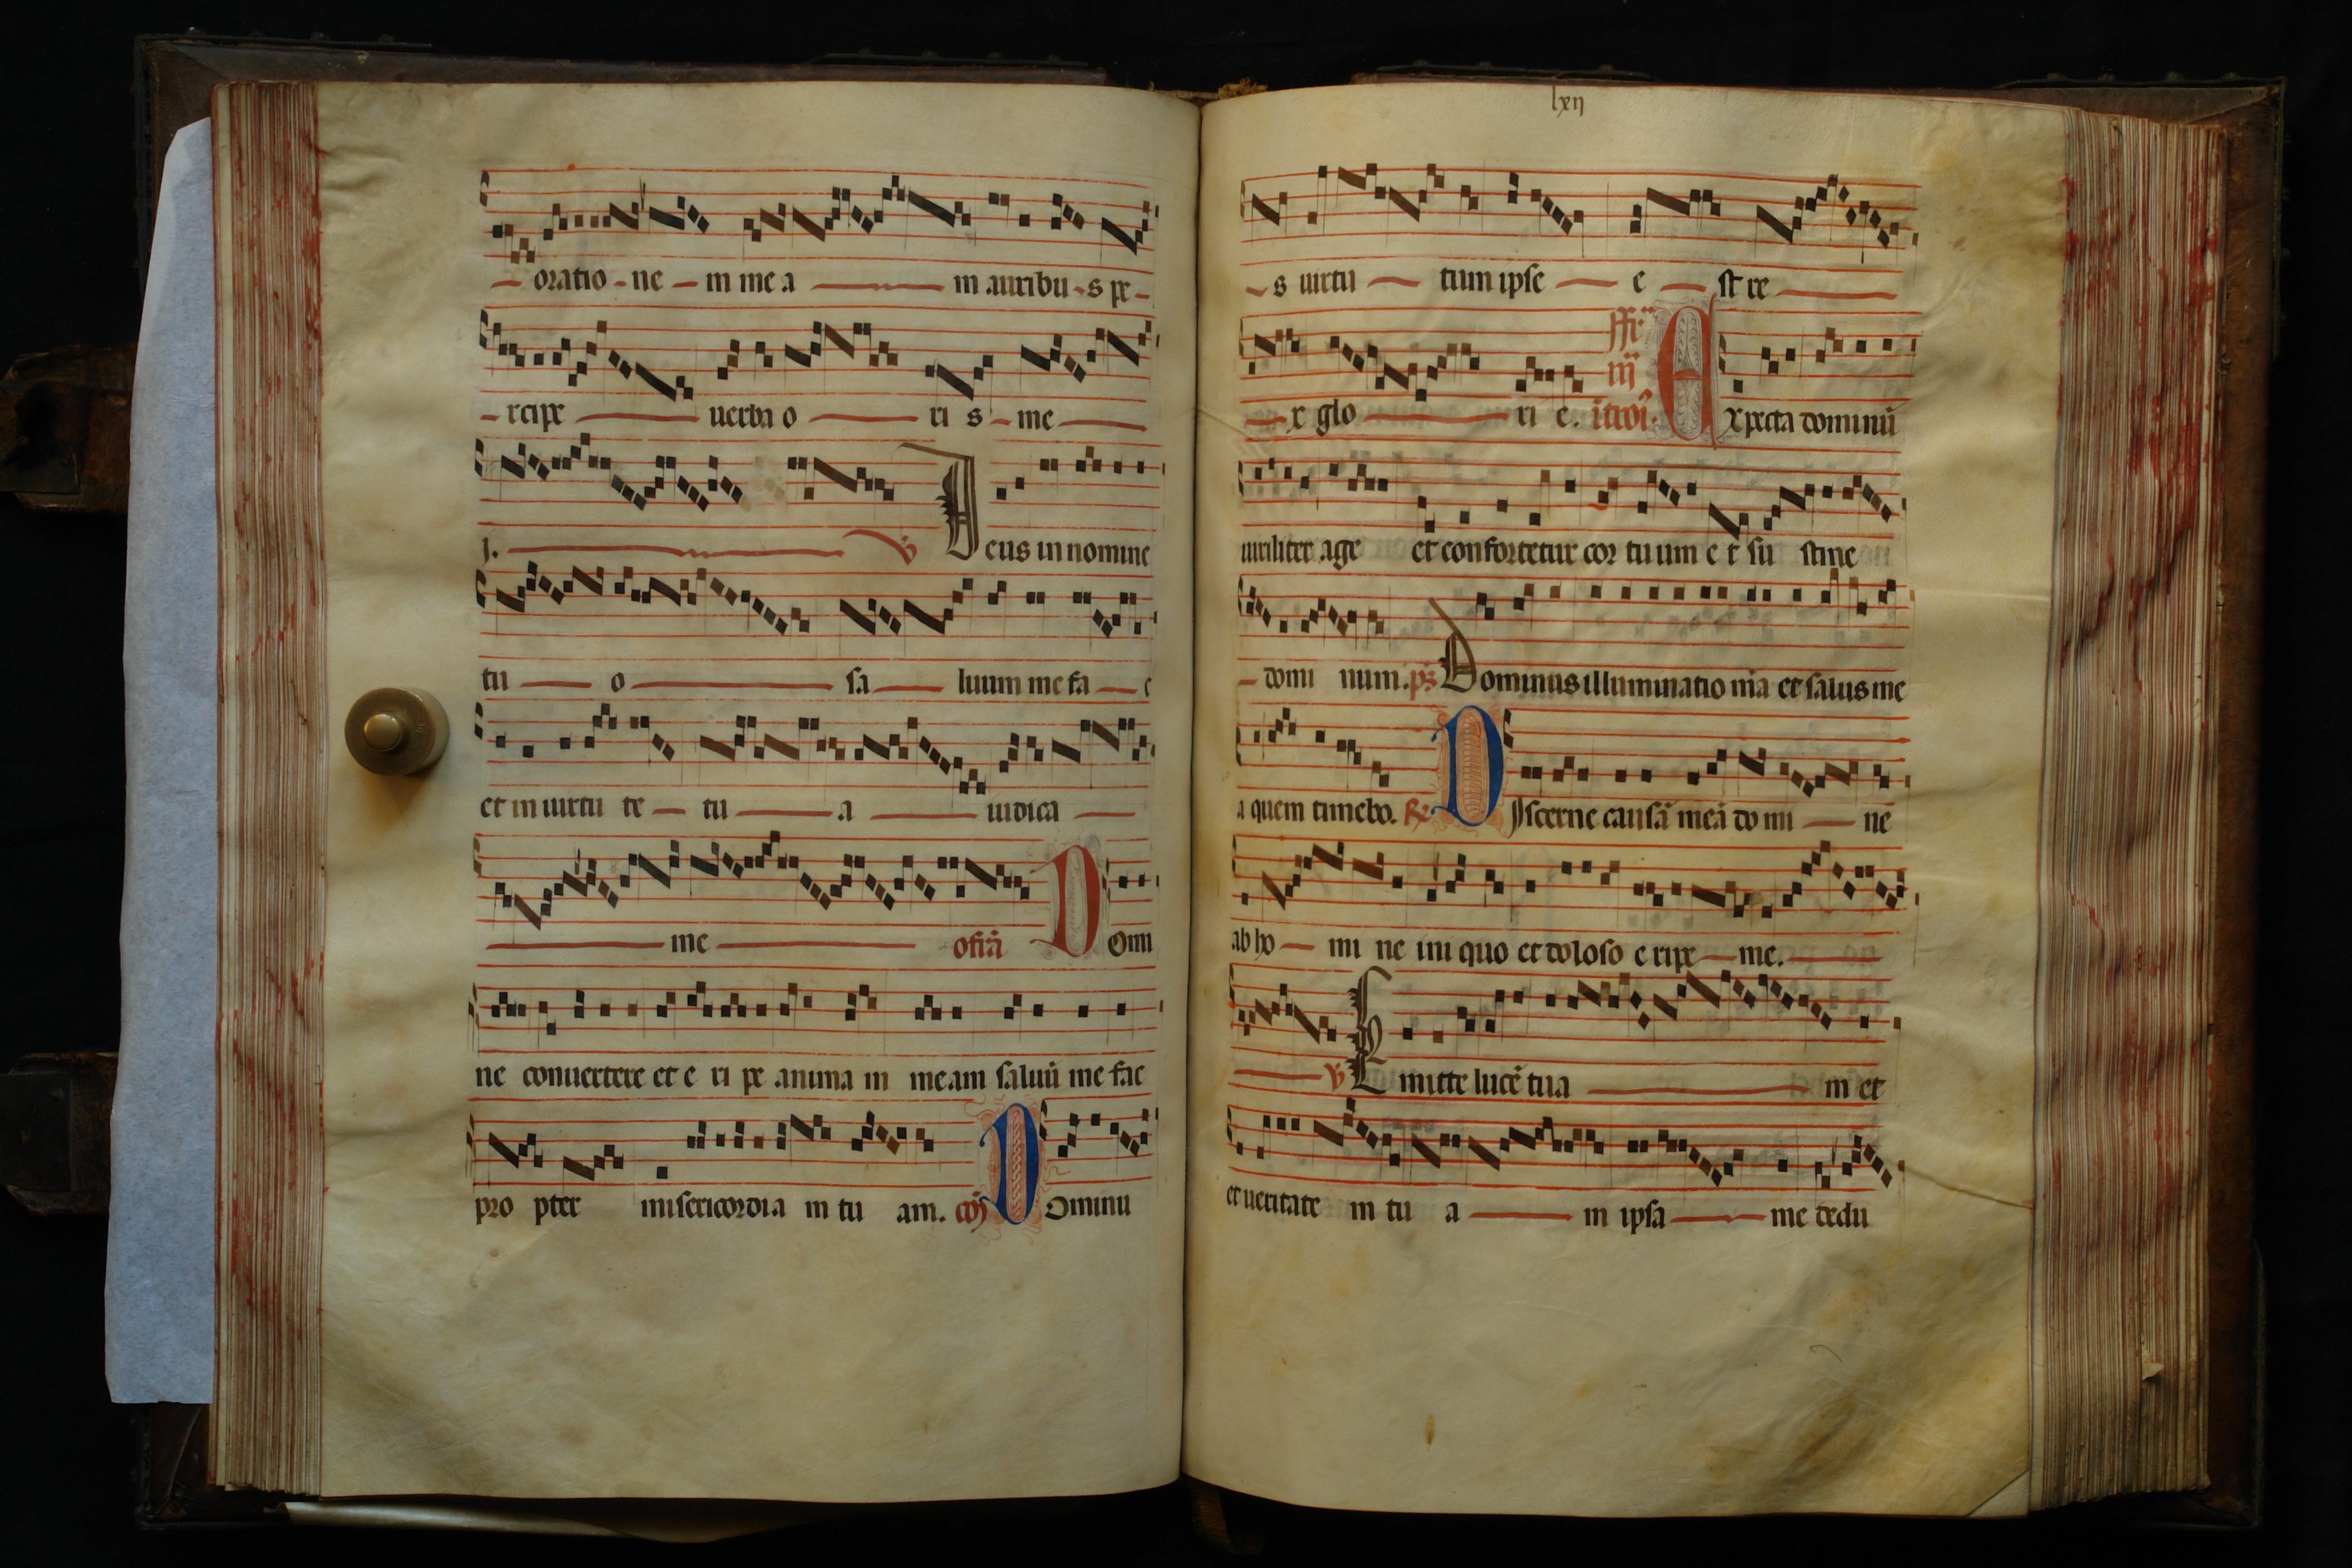 oratio ne m me a m auribu s pe
rcipe uerba o ri s me
j. ℣ Deus in nomine
tu o sa luum me fa c
et in uirtu te tu a iudica
me offꝛ̃ Domi
ne conuertere et e ri pe anima m meam saluũ me fac
pro pter misericordia m tu am. cõ Dominu
lxij
s uirtu tum ipse e st re
x glo ri e. fr̃ iij ĩtroĩ. Expecta dominũ
uiriliter age et confortetur cor tuum e t su stine
domi num. ps̃ Dominus illuminatio m̃a et salus me
a quem timebo. ℞ Discerne causã meã do mi ne
ab ho mi ne ini quo et doloso e ripe me.
℣ Emitte lucẽ tua m et
et ueritate m tu a in ipsa me dedu